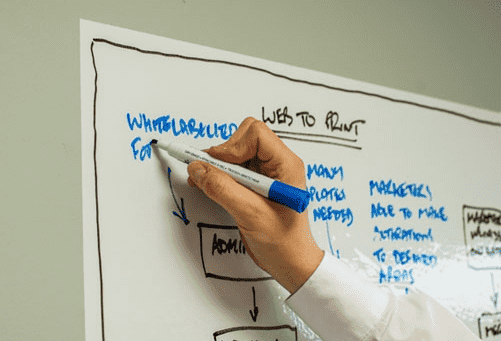 WEB TO PRINT
WHITELABELLED
FO
MANY
PLATES
NEEDED
MARKETERS
ABLE TO MAKE
ALTERATIONS
TO DEFINED
AREAS
ADMIN